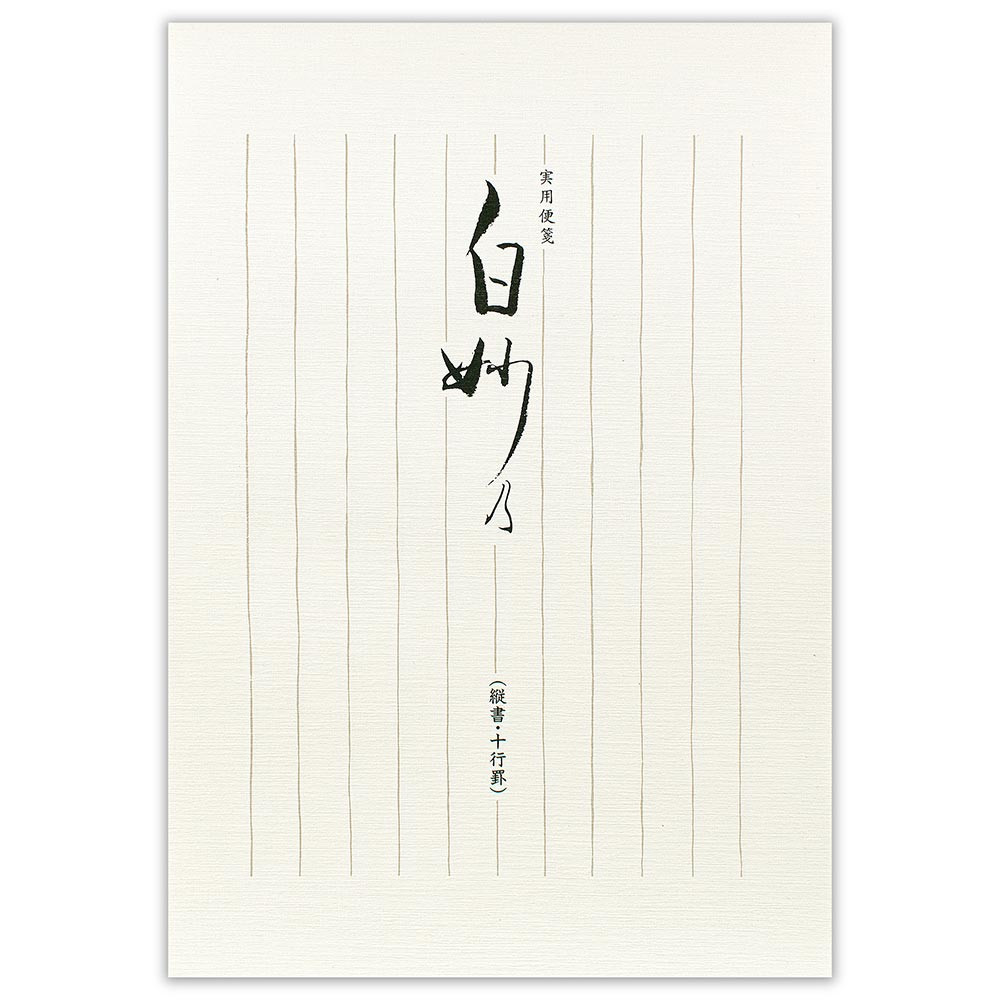 実用便箋
白妙乃
（縦書・十行罫）